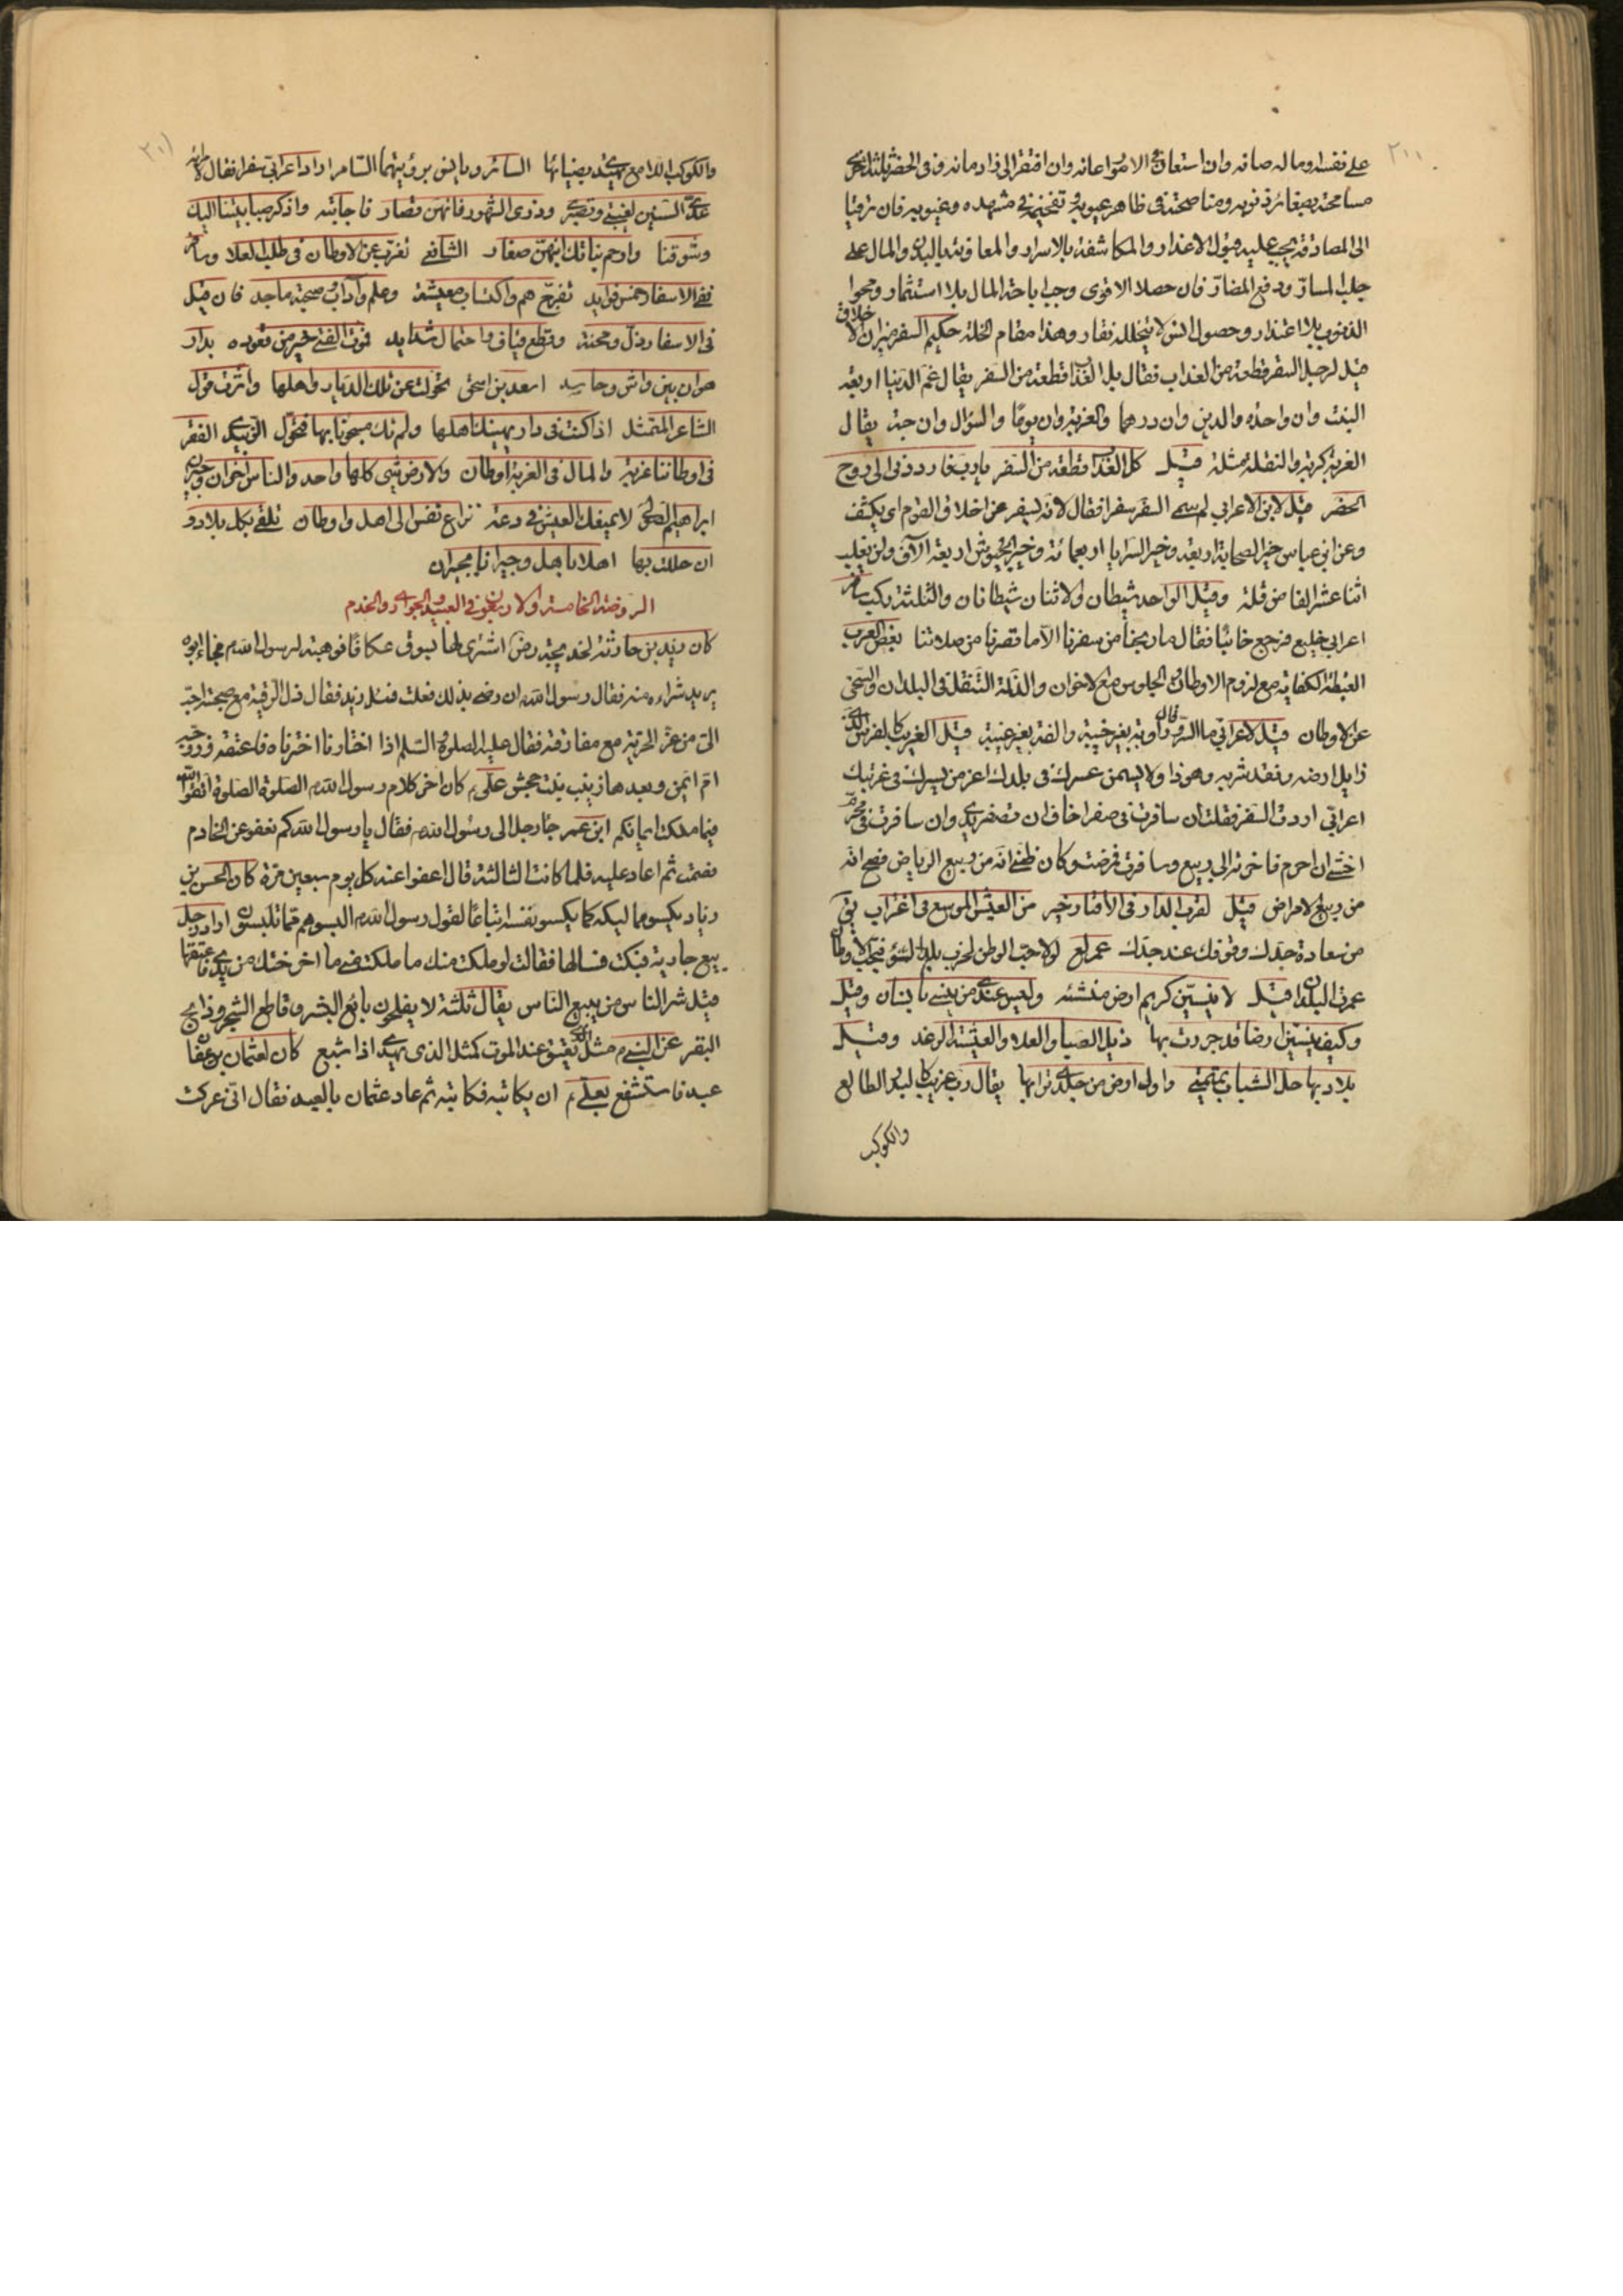 ٢٠٠
على نفسه وماله صانه وان استعان في الامور اعانه وان افتقر الى زاد مانه وفى الحضر ثلثة
مسامحته بصغائر ذنوبه ومناصحته فى ظاهر عيوبه وتفخيمه فى مشهده وغيوبه فان ترقيا
الى المصادقة يجب عليه قبول الاعذار والمكاشفة بالاسرار والمعاونة باليد والمال على
جلب المسار ودفع المضار فان حصلا الاقوى وجب اباحة المال بلا استثمار ومحو
الذنوب بلا اعتذار وحصول انس لا يتخلله نفار وهذا مقام الخلة حكيم السفر ميزان الاخلاق
قيل لرجل السفر قطعة من العذاب فقال بل العذاب قطعة من السفر يقال غم الدنيا اربعة
البنت وان واحده والدين وان درهما والغربة وان يوما والسؤال وان حبة يقال
الغربة كربة والنقلة مثلة قيل كل العذاب قطعة من السفر يا رب فارددنى الى روح
الحضر قيل لابن الاعرابي لم سمى السفر سفرا فقال لانه يسفر عن اخلاق القوم اى يكشف
وعن ابن عباس خير الصحابة اربعة وخير السرايا اربعمائة وخير الجيوش اربعة الآف ولن يغلب
اثنا عشر الفا من قلة وقيل الواحد شيطان والاثنان شيطانان والثلثة ركب سافر
اعرابي خليع فرجع خائبا فقال ما ربحنا من سفرنا الا ما قصرنا من صلاتنا بعض العرب
الغبطة الكفاية مع لزوم الاوطان والجلوس مع الاخوان والذلة التنقل فى البلدان والتنحى
عن الاوطان قيل لاعرابي ما السرور قال اوبة بغير خيبة والفة بغير غيبة قيل الغريب كالفرس الذى
زايل ارضه وفقد شربه وهو ذاو لا يسمن عسرك فى بلدك اعز من يسرك فى غربتك
اعرابي اردت السفر فقلت ان سافرت فى صفر اخاف ان تصفر يدى وان سافرت فى محرم
اخشى ان احرم فاخرته الى ربيع وسافرت فمرضت وكان ظنى انه من ربيع الرياض فصح انه
من ربيع الامراض قيل لقرب الدار فى الاقتار خير من العيش الموسع فى اغتراب
من سعادة جدك وقوفك عند حدك عمر لولا حب الوطن لخرب بلد السوء فبحب الاوطان
عمرت البلدان قيل لا ينسين كريم ارض منشئه وليس عندى من ينسى بانسان وقيل
وكيف ينسين ارضا قد جررت بها ذيل الصبا والعلا والعيشة الرغد وقيل
بلاد بها حل الشباب تميمتى واول ارض مس جلدى ترابها يقال رب غريب كالبدر الطالع
والكوكب
٢٠١
والكوكب اللامع يهتدى بضيائها السائر ويانس برؤيتهما السامر اراد اعرابي سفرا فقال لامراته
عدى السنين لغيبتى وتصبرى وذرى الشهور فانهن قصار فاجابته واذكر صبابتنا اليك
وشوقنا وارحم بناتك انهن صغار الشافعى تغرب عن الاوطان فى طلب العلا وسافر
ففى الاسفار خمس فوايد تفرج هم واكتساب معيشة وعلم وآداب وصحبة ماجد فان قيل
فى الاسفار ذل ومحنة وقطع فياف واحتمال شدايد فموت الفتى خير من قعوده بدار
هوان بين واش وحاسد اسعد بن اسحق تحولت عن تلك الديار واهلها واثرت قول
الشاعر المتمثل اذا كنت فى دار يهينك اهلها ولم تك محبوسا بها فتحول الزبيدى الفقر
فى اوطاننا غربة والمال فى الغربة اوطان والارض شئ كلها واحد والناس اخوان وجيران
ابراهيم الصولى لا يمنعنك العيش فى دعة نزاع نفس الى اهل واوطان تلقى بكل بلاد
ان حللت بها اهلا باهل وجيرانا بجيران
الروضة الخامسة والاربعون فى العبيد والجوارى والخدم
كان زيد بن حارثة لخديجة رض اشترى لها بسوق عكاظ فوهبته لرسول الله م فجاء ابوه
يريد شراءه منه فقال رسول الله ان رضى بذلك فعلت فسئل زيد فقال ذل الرقية مع صحبته احب
الى من عز الحرية مع مفارقته فقال عليه الصلوة والسلم اذا اختارنا اخترناه فاعتقه وزوجه
ام ايمن وبعدها زينب بنت جحش على كان اخر كلام رسول الله م الصلوة الصلوة اتقوا الله
فيما ملكت ايمانكم ابن عمر جاء رجل الى رسول الله م فقال يا رسول الله كم نعفو عن الخادم
فصمت ثم اعاد عليه فلما كانت الثالثة قال اعفوا عنه كل يوم سبعين مرة كان الحسن بن
زياد يكسو مماليكه كما يكسو نفسه اتباعا لقول رسول الله م البسوهم مما تلبسون اراد رجل
بيع جارية فبكت فسالها فقالت لو ملكت منك ما ملكت منى ما اخرجتك من يدى فاعتقها
قيل شر الناس من يبيع الناس يقال ثلثة لا يفلحون بائع البشر وقاطع الشجر وذابح
البقر عن النبى م مثل الذى يعتق عند الموت كمثل الذى يهدى اذا شبع كان لعثمان بن عفان
عبد فاستشفع بعلى ان يكاتبه فكاتبه ثم عاد عثمان بالعبد فقال انى عركت